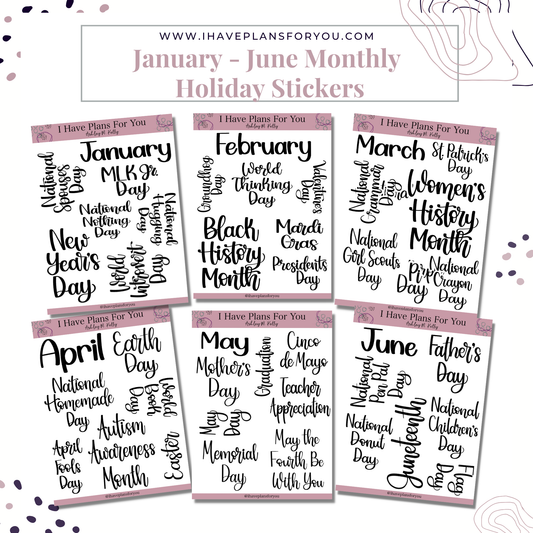 WWW.IHAVEPLANSFORYOU.COM
January - June Monthly
Holiday Stickers
I Have Plans For You
Ashley M. Petty
January
National
Spouses
Day
MLK Jr.
Day
National
Nothing
Day
National
Hugging
Day
New
Year's
Day
World
Introvert
Day
@ihaveplansforyou
I Have Plans For You
Ashley M. Petty
February
Groundhog
Day
World
Thinking
Day
Valentine's
Day
Black
History
Month
Mardi
Gras
Presidents
Day
@ihaveplansforyou
I Have Plans For You
Ashley M. Petty
March
St Patrick's
Day
National
Grammar
Day
Women's
History
Month
National
Girl Scouts
Day
Pi
Day
National
Crayon
Day
@ihaveplansforyou
I Have Plans For You
Ashley M. Petty
April
Earth
Day
National
Homemade
Day
World
Book
Day
April
Fools
Day
Autism
Awareness
Month
Easter
@ihaveplansforyou
I Have Plans For You
Ashley M. Petty
May
Graduation
Cinco
de Mayo
Mother's
Day
Teacher
Appreciation
May
Day
Memorial
Day
May the
Fourth Be
With You
@ihaveplansforyou
I Have Plans For You
Ashley M. Petty
June
Father's
Day
National
Pen Pal
Day
National
Donut
Day
Juneteenth
National
Children's
Day
Flag
Day
@ihaveplansforyou